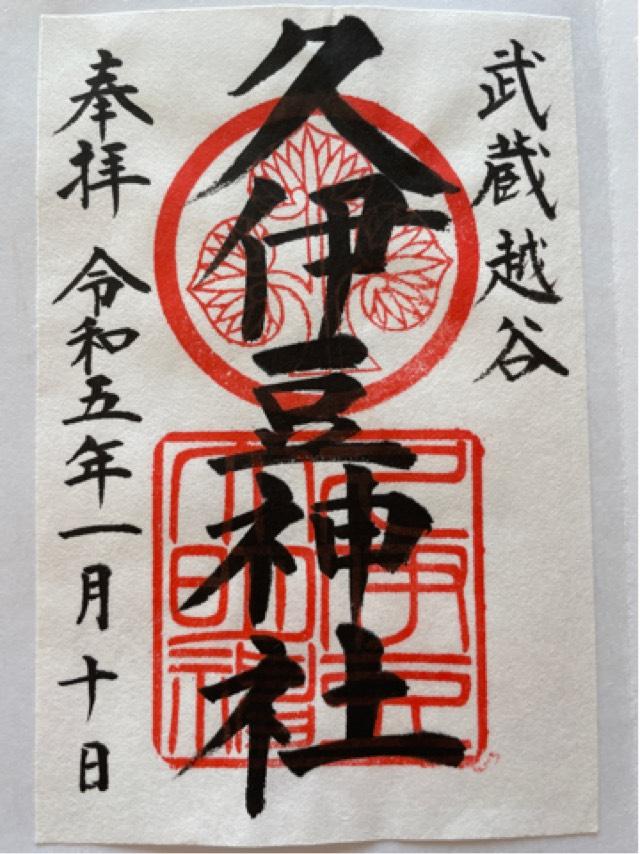 武蔵越谷
久伊豆神社
奉拝 令和五年一月十日